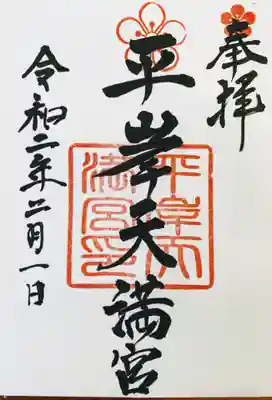 奉拝
平岸天満宮
平岸天満宮印
令和二年二月一日